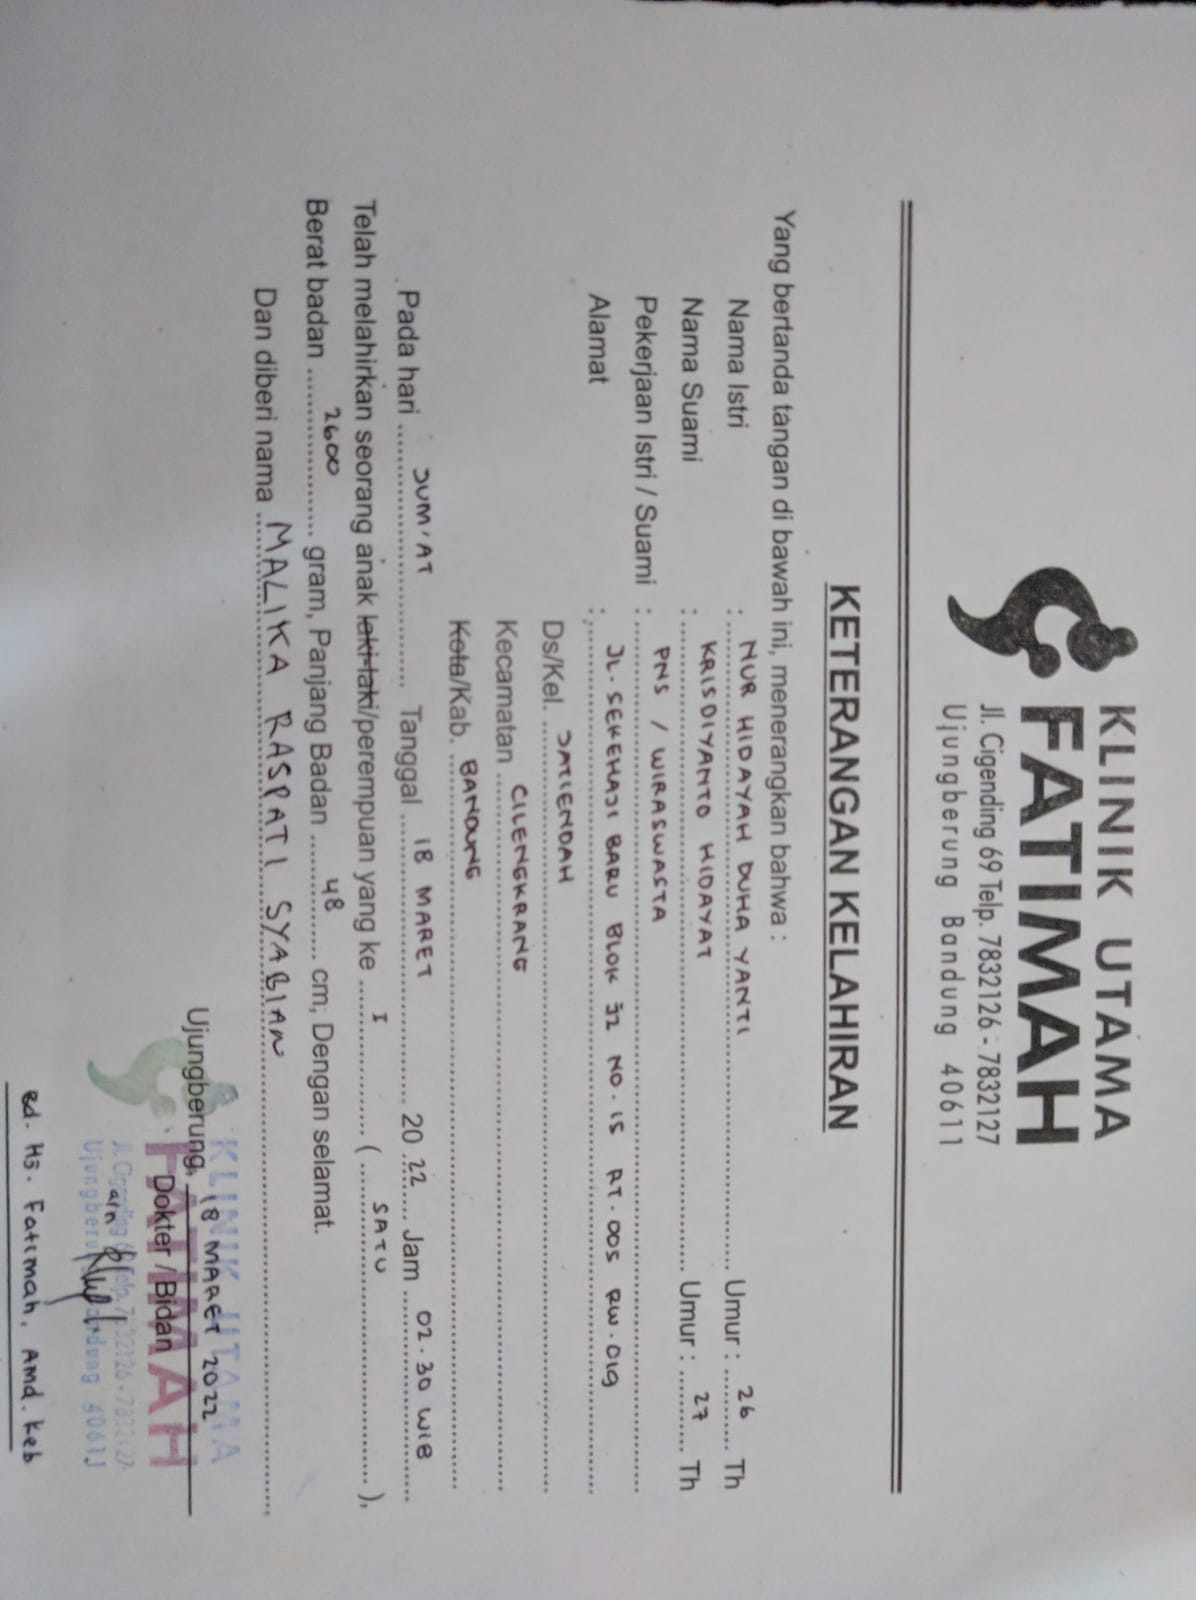 KLINIK UTAMA
FATIMAH
Jl. Cigending 69 Telp. 7832126 - 7832127
Ujungberung Bandung 40611
KETERANGAN KELAHIRAN
Yang bertanda tangan di bawah ini, menerangkan bahwa :
Nama Istri : NUR HIDAYAH DUHA YANTI Umur : 26 Th
Nama Suami : KRISDIYANTO HIDAYAT Umur : 27 Th
Pekerjaan Istri / Suami : PNS / WIRASWASTA
Alamat : JL. SEKEHAJI BARU BLOK 32 NO. 15 RT. 005 RW. 019
Ds/Kel. JATIENDAH
Kecamatan CILENGKRANG
Kota/Kab. BANDUNG
Pada hari JUM'AT Tanggal 18 MARET 20 22 Jam 02.30 WIB
Telah melahirkan seorang anak laki-laki/perempuan yang ke I ( SATU ),
Berat badan 2600 gram, Panjang Badan 48 cm; Dengan selamat.
Dan diberi nama MALIKA RASPATI SYABIAN
Ujungberung, 18 MARET 2022
Dokter / Bidan
KLINIK UTAMA
FATIMAH
Jl. Cigending 69 Telp. 7832126 - 7832127
Ujungberung Bandung 40611
Bd. Hj. Fatimah, Amd. Keb